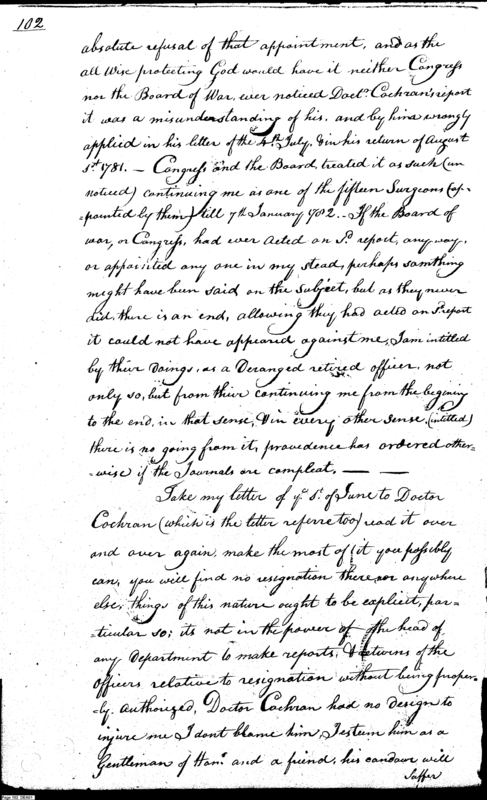 102
absolute refusal of that appointment, and as the
all Wise protecting God would have it neither Congress
nor the Board of War, ever noticed Doct.r Cochran's report
it was a misunderstanding of his, and by him wrongly
applied in his letter of the 4th July, & in his return of August
1st 1781. — Congress and the Board, treated it as such (un
noticed) continuing me as one of the fifteen Surgeons (ap-
-pointed by them) till 7th January 1782. — If the Board of
War, or Congress, had ever acted on sd. report, any way,
or appointed any one in my stead, perhaps somthing
might have been said on the subject, but as they never
did, there is an end, allowing they had acted on sd. report
it could not have appeared against me, I am intitled
by their Doings, as a Deranged retired officer, not
only so, but from their continuing me from the begining
to the end, in that sense, & in every other sense, (intitled)
there is no going from it, providence has ordered other-
-wise if the Journals are compleat, — —
Take my letter of ye. 5t. of June to Doctor
Cochran (which is the letter referre too) read it over
and over again, make the most of it you possibly
can, you will find no resignation there or anywhere
else, things of this nature ought to be explicit, par-
-ticular so; its not in the power of the head of
any Department to make reports, & returns of the
Officers relative to resignation without being proper-
-ly. Authorized, Doctor Cochran had no design to
injure me I dont blame him, I esteem him as a
Gentleman of Honr. and a friend, his candour will
Suffer